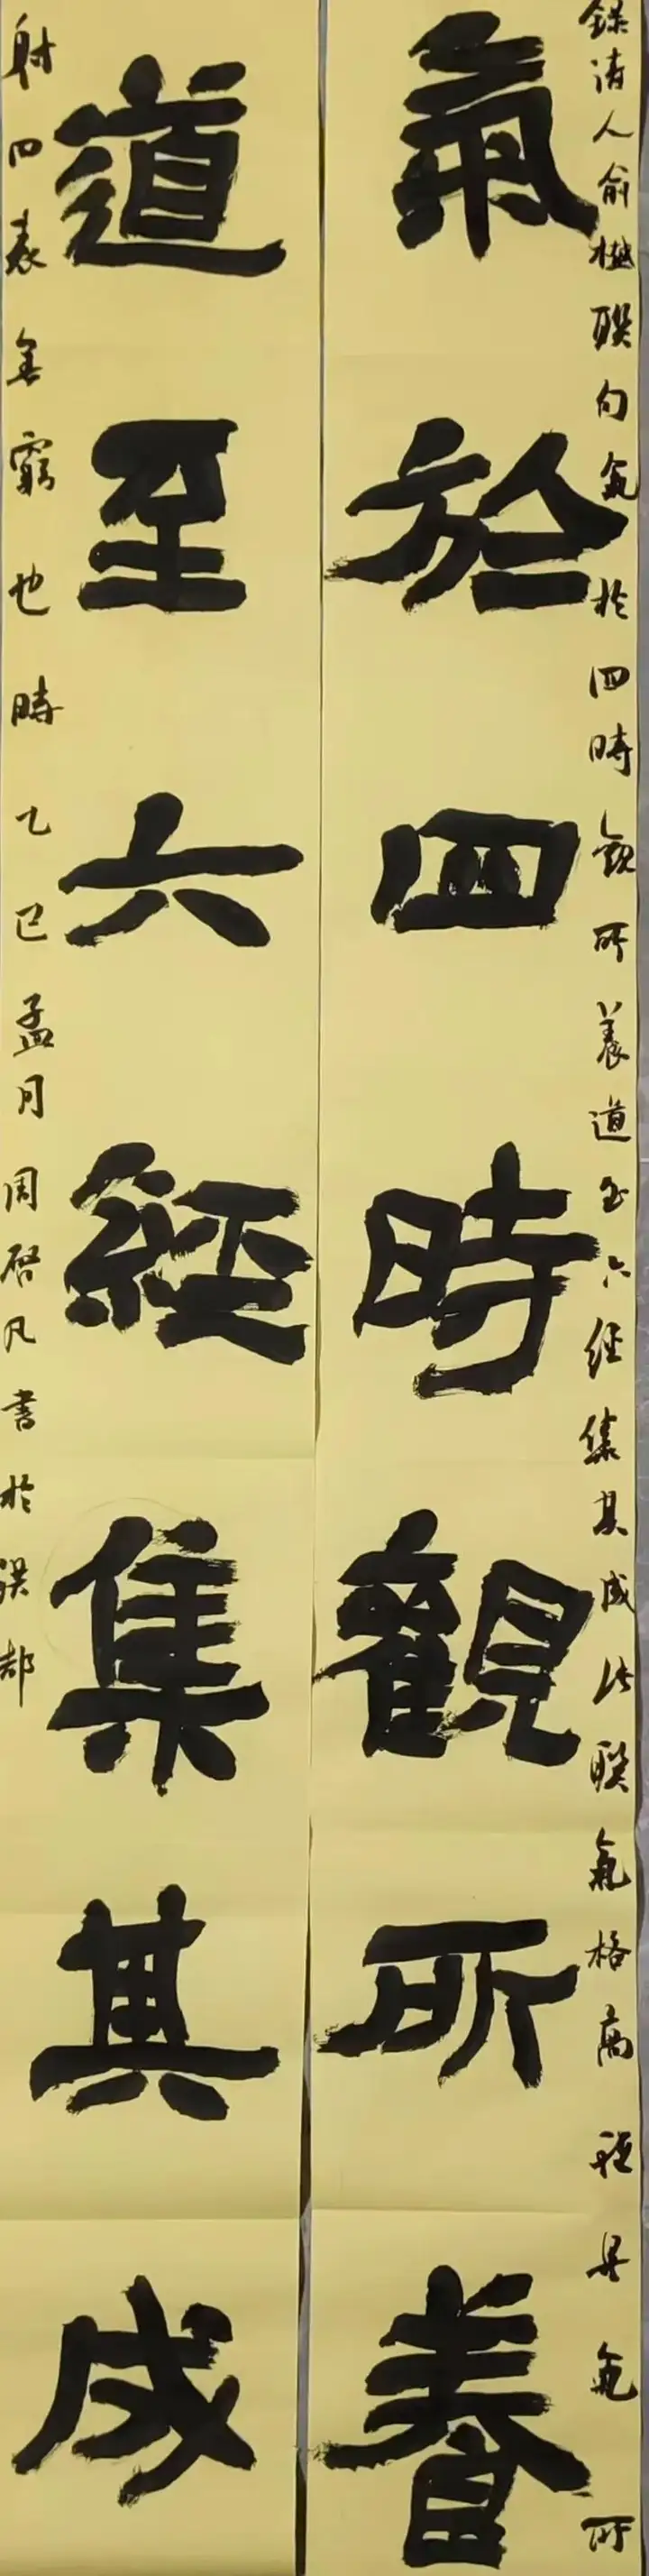 錄清人俞樾聯句氣於四時觀所養道至六經集其成此聯氣格高程其氣所
氣於四時觀所養
道至六經集其成
射四表無窮也時乙巳孟月周啓凡書於洪都